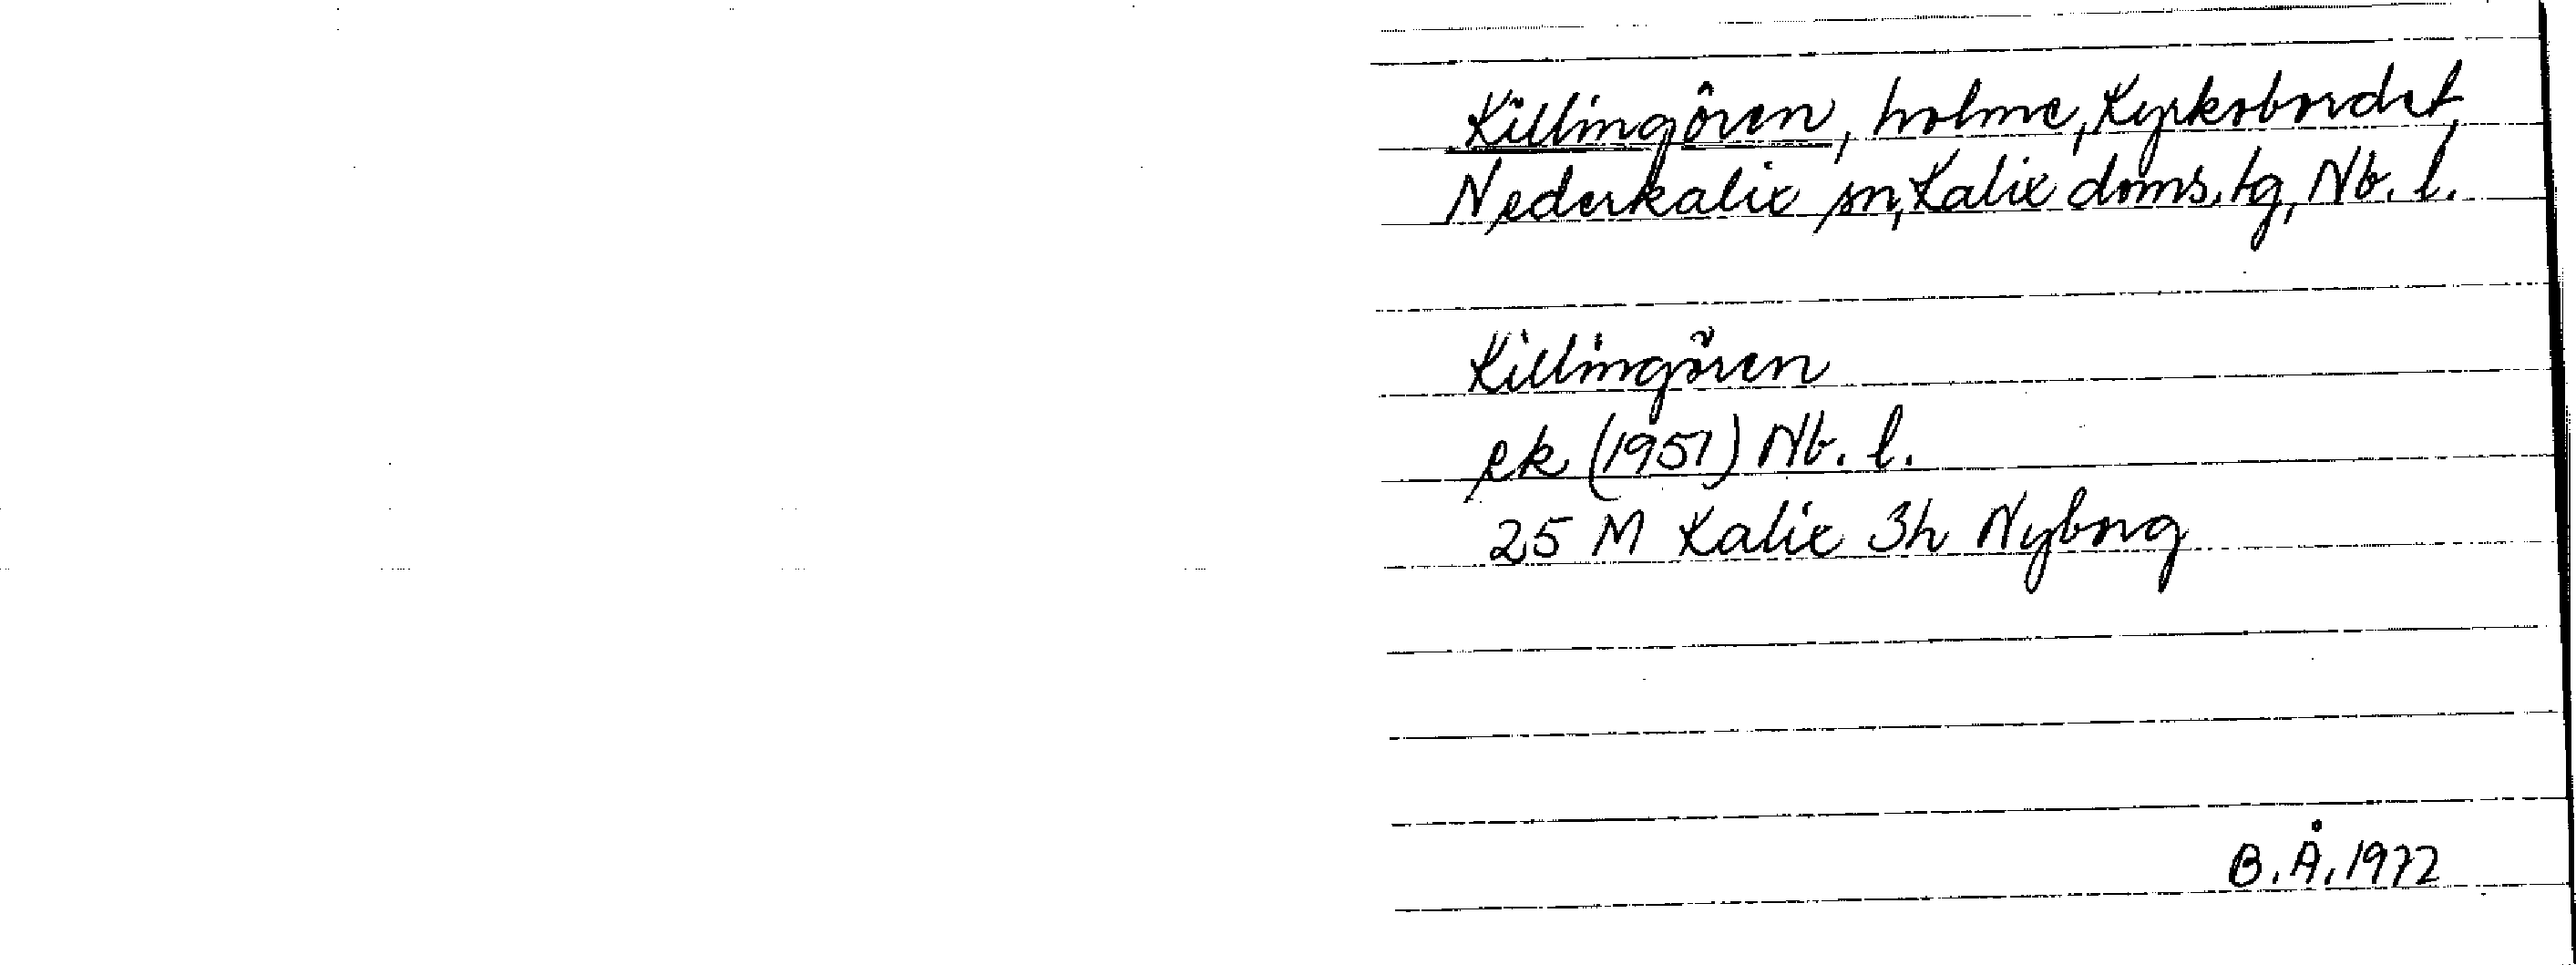 Killingören, holme, Kyrkobordet,
Nederkalix sn, Kalix doms. tg, Nb. l.
Killingören
ek (1951) Nb. l.
25 M Kalix 3h Nyborg
B. Å. 1972